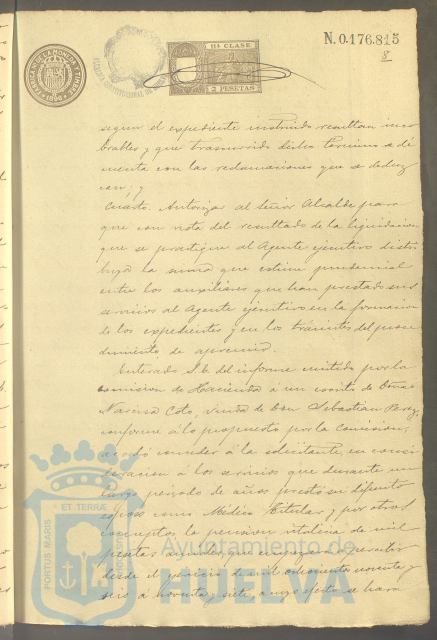 N. 0.176.815
8
11ª CLASE
2 PESETAS
segun el expediente instruido resultan inco
brables y que trascurrido dichos términos se dé
cuenta con las reclamaciones que se deduz
can; y
Cuarto. Autorizar al Señor Alcalde para
que con vista del resultado de la liquidacion
que se practique al Agente ejecutivo distri
buya la suma que estime prudencial
entre los auxiliares que han prestado sus
servicios al Agente ejecutivo en la formacion
de los expedientes y en los trámites del proce
dimiento de apremio.
Enterado S.E. del informe emitido por la
comision de Hacienda á un escrito de Doña
Narcisa Coto, viuda de Don Sebastian Perez,
conforme á lo propuesto por la Comision,
acordó conceder á la solicitante, en consi
deracion á los servicios que durante un
largo periodo de años prestó su difunto
esposo como Médico titular y por otros
conceptos, la pension vitalicia de mil
pesetas anuales, que empezará á percibir
desde el ejercicio de mil ochocientos noventa y
seis á noventa y siete, á cuyo efecto se hará
PORTUS MARIS ET TERRAE
Ayuntamiento de
HUELVA